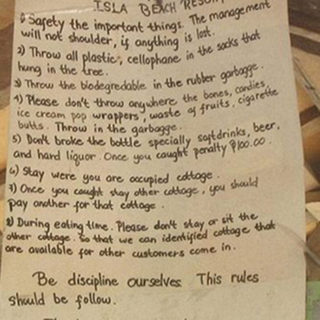 ISLA BEACH RESORT
1) Safety the important things. The management
will not shoulder, if anything is lost.
2) Throw all plastic, cellophane in the sacks that
hung in the tree.
3) Throw the biodegredable in the rubber garbagge.
4) Please don't throw anywhere the bones, candies,
ice cream pop wrappers, waste of fruits, cigarette
butts. Throw in the garbagge.
5) Don't broke the bottle specially softdrinks, beer,
and hard liquor. Once you caught penalty ₱100.00.
6) Stay were you are occupied cottage.
7) Once you caught stay other cottage, you should
pay another for that cottage.
8) During eating time. Please don't stay or sit the
other cottage. So that we can identified cottage that
are available for other customers come in.
Be discipline ourselves This rules
should be follow.